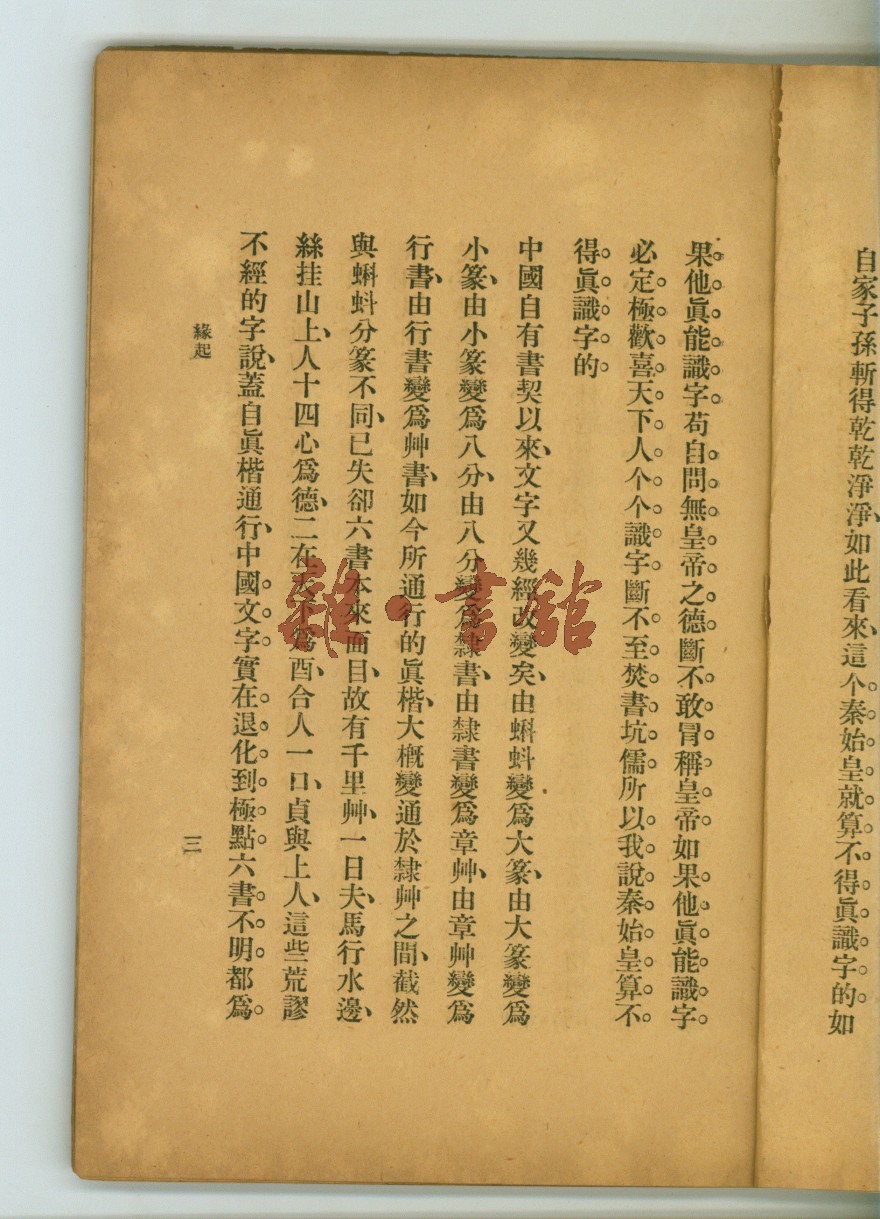 自家子孫斬得乾乾淨淨、如此看來、這个秦始皇就算不得眞識字的如
果他眞能識字苟自問無皇帝之德斷不敢冒稱皇帝如果他眞能識字
必定極歡喜天下人个个識字斷不至焚書坑儒所以我說秦始皇算不
得眞識字的
中國自有書契以來、文字又幾經改變矣、由蝌蚪變爲大篆、由大篆變爲
小篆、由小篆變爲八分、由八分變爲隸書、由隸書變爲章艸、由章艸變爲
行書、由行書變爲艸書、如今所通行的眞楷、大槪變通於隸艸之間、截然
與蝌蚪分篆不同、已失卻六書本來面目、故有千里艸、一日夫、馬行水邊、
絲挂山上、人十四心爲德、二在天下爲酉、合人一口、貞與上人、這些荒謬
不經的字說、蓋自眞楷通行、中國文字實在退化到極點六書不明都爲
緣起
三
雜·書館